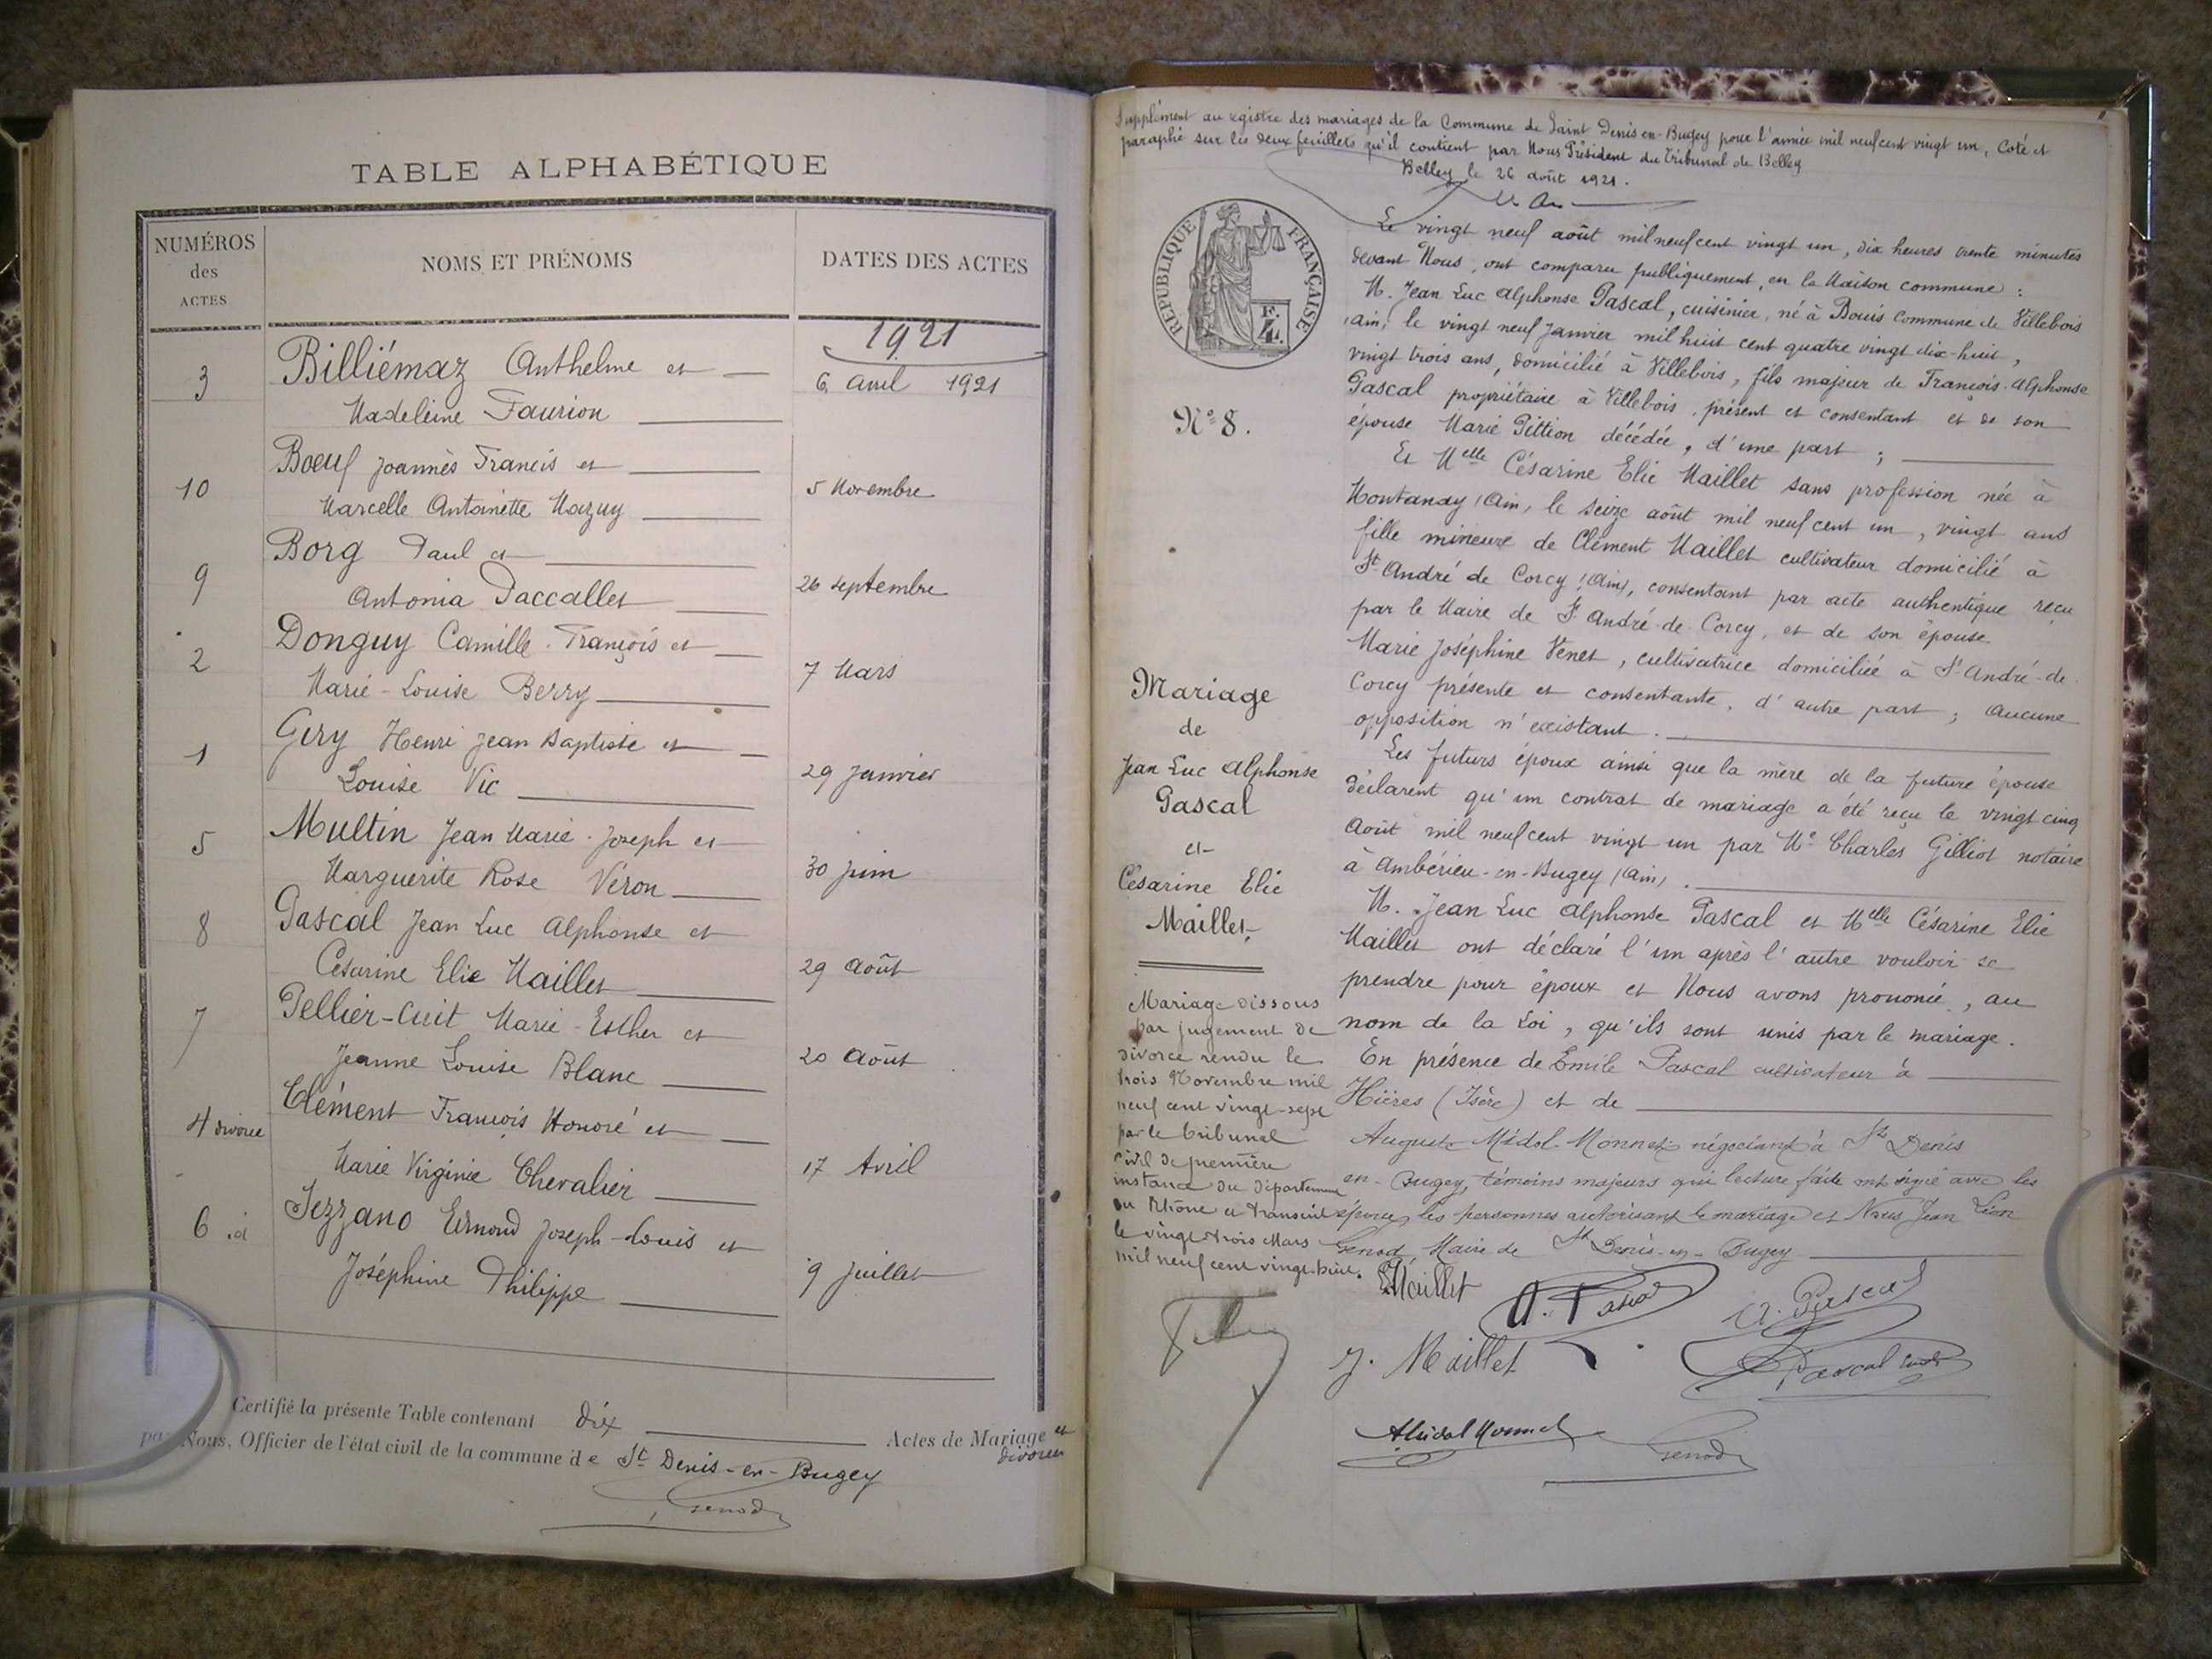 TABLE ALPHABÉTIQUE
NUMÉROS
des
ACTES
NOMS ET PRÉNOMS
DATES DES ACTES
1921
3
Billiémaz Anthelme et
6 Avril 1921
Madeleine Faurion
Boeuf Joannès Francis et
10
5 Novembre
Marcelle Antoinette Mazuy
Borg Paul et
9
26 septembre
Antonia Paccallet
Donguy Camille François et
2
7 Mars
Marie-Louise Berry
Gery Henri Jean Baptiste et
1
29 Janvier
Louise Vic
Multin Jean Marie Joseph et
5
30 juin
Marguerite Rose Véron
Pascal Jean Luc Alphonse et
8
29 Août
Césarine Elie Maillet
Pellier-Cuit Marie-Esther et
7
20 Août
Jeanne Louise Blanc
Clément François Honoré et
4 divorce
17 Avril
Marie Virginie Chevalier
6 id
Joseph-Louis et
9 Juillet
Joséphine Philippe
Certifié la présente Table contenant dix Actes de Mariage et
divorces
par Nous, Officier de l'état civil de la commune de St Denis-en-Bugey
Genod
Supplément au registre des mariages de la Commune de Saint Denis-en-Bugey pour l'année mil neuf cent vingt un, Coté et
paraphé sur les deux feuillets qu'il contient par Nous Président du Tribunal de Belley
Belley le 26 août 1921.
RÉPUBLIQUE FRANÇAISE
Le vingt neuf août mil neuf cent vingt un, dix heures trente minutes
devant Nous, ont comparu publiquement, en la Maison commune :
M. Jean Luc Alphonse Pascal, cuisinier, né à Bouis commune de Villebois
(Ain) le vingt neuf Janvier mil huit cent quatre vingt dix-huit,
vingt trois ans, domicilié à Villebois, fils majeur de François-Alphonse
Pascal propriétaire à Villebois, présent et consentant et de son
épouse Marie Pittion décédée, d'une part ;
N° 8.
Et Melle Césarine Elie Maillet sans profession née à
Montanay (Ain) le seize août mil neuf cent un, vingt ans
fille mineure de Clément Maillet cultivateur domicilié à
St André de Corcy (Ain), consentant par acte authentique reçu
par le Maire de St André-de-Corcy, et de son épouse
Marie Joséphine Venet, cultivatrice domiciliée à St André-de-
Corcy présente et consentante, d'autre part ; Aucune
opposition n'existant.
Les futurs époux ainsi que la mère de la future épouse
déclarent qu'un contrat de mariage a été reçu le vingt cinq
Août mil neuf cent vingt un par Me Charles Gilliot notaire
à Ambérieu-en-Bugey (Ain).
M. Jean Luc Alphonse Pascal et Melle Césarine Elie
Maillet ont déclaré l'un après l'autre vouloir se
prendre pour époux et Nous avons prononcé, au
nom de la Loi, qu'ils sont unis par le mariage.
En présence de Emile Pascal cultivateur à
Hières (Isère) et de
Auguste Midol-Monnet négociant à St Denis
en-Bugey, témoins majeurs qui lecture faite ont signé avec les
époux, les personnes autorisant le mariage et Nous Jean Léon
Genod, Maire de St Denis-en-Bugey
Mariage
de
Jean Luc Alphonse
Pascal
et
Césarine Elie
Maillet
Mariage dissous
par jugement de
divorce rendu le
trois Novembre mil
neuf cent vingt-sept
par le tribunal
civil de première
instance du département
du Rhône et transcrit
le vingt-trois Mars
mil neuf cent vingt-huit.
Maillet
A. Pascal
A. Pascal
J. Maillet
Pascal
AMidol Monnet
Genod